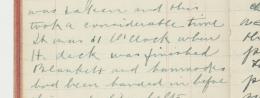 was taken and this
took a considerable time
It was 11 O'Clock when
H. deck was finished
Blankets and hammocks
had been handed in before